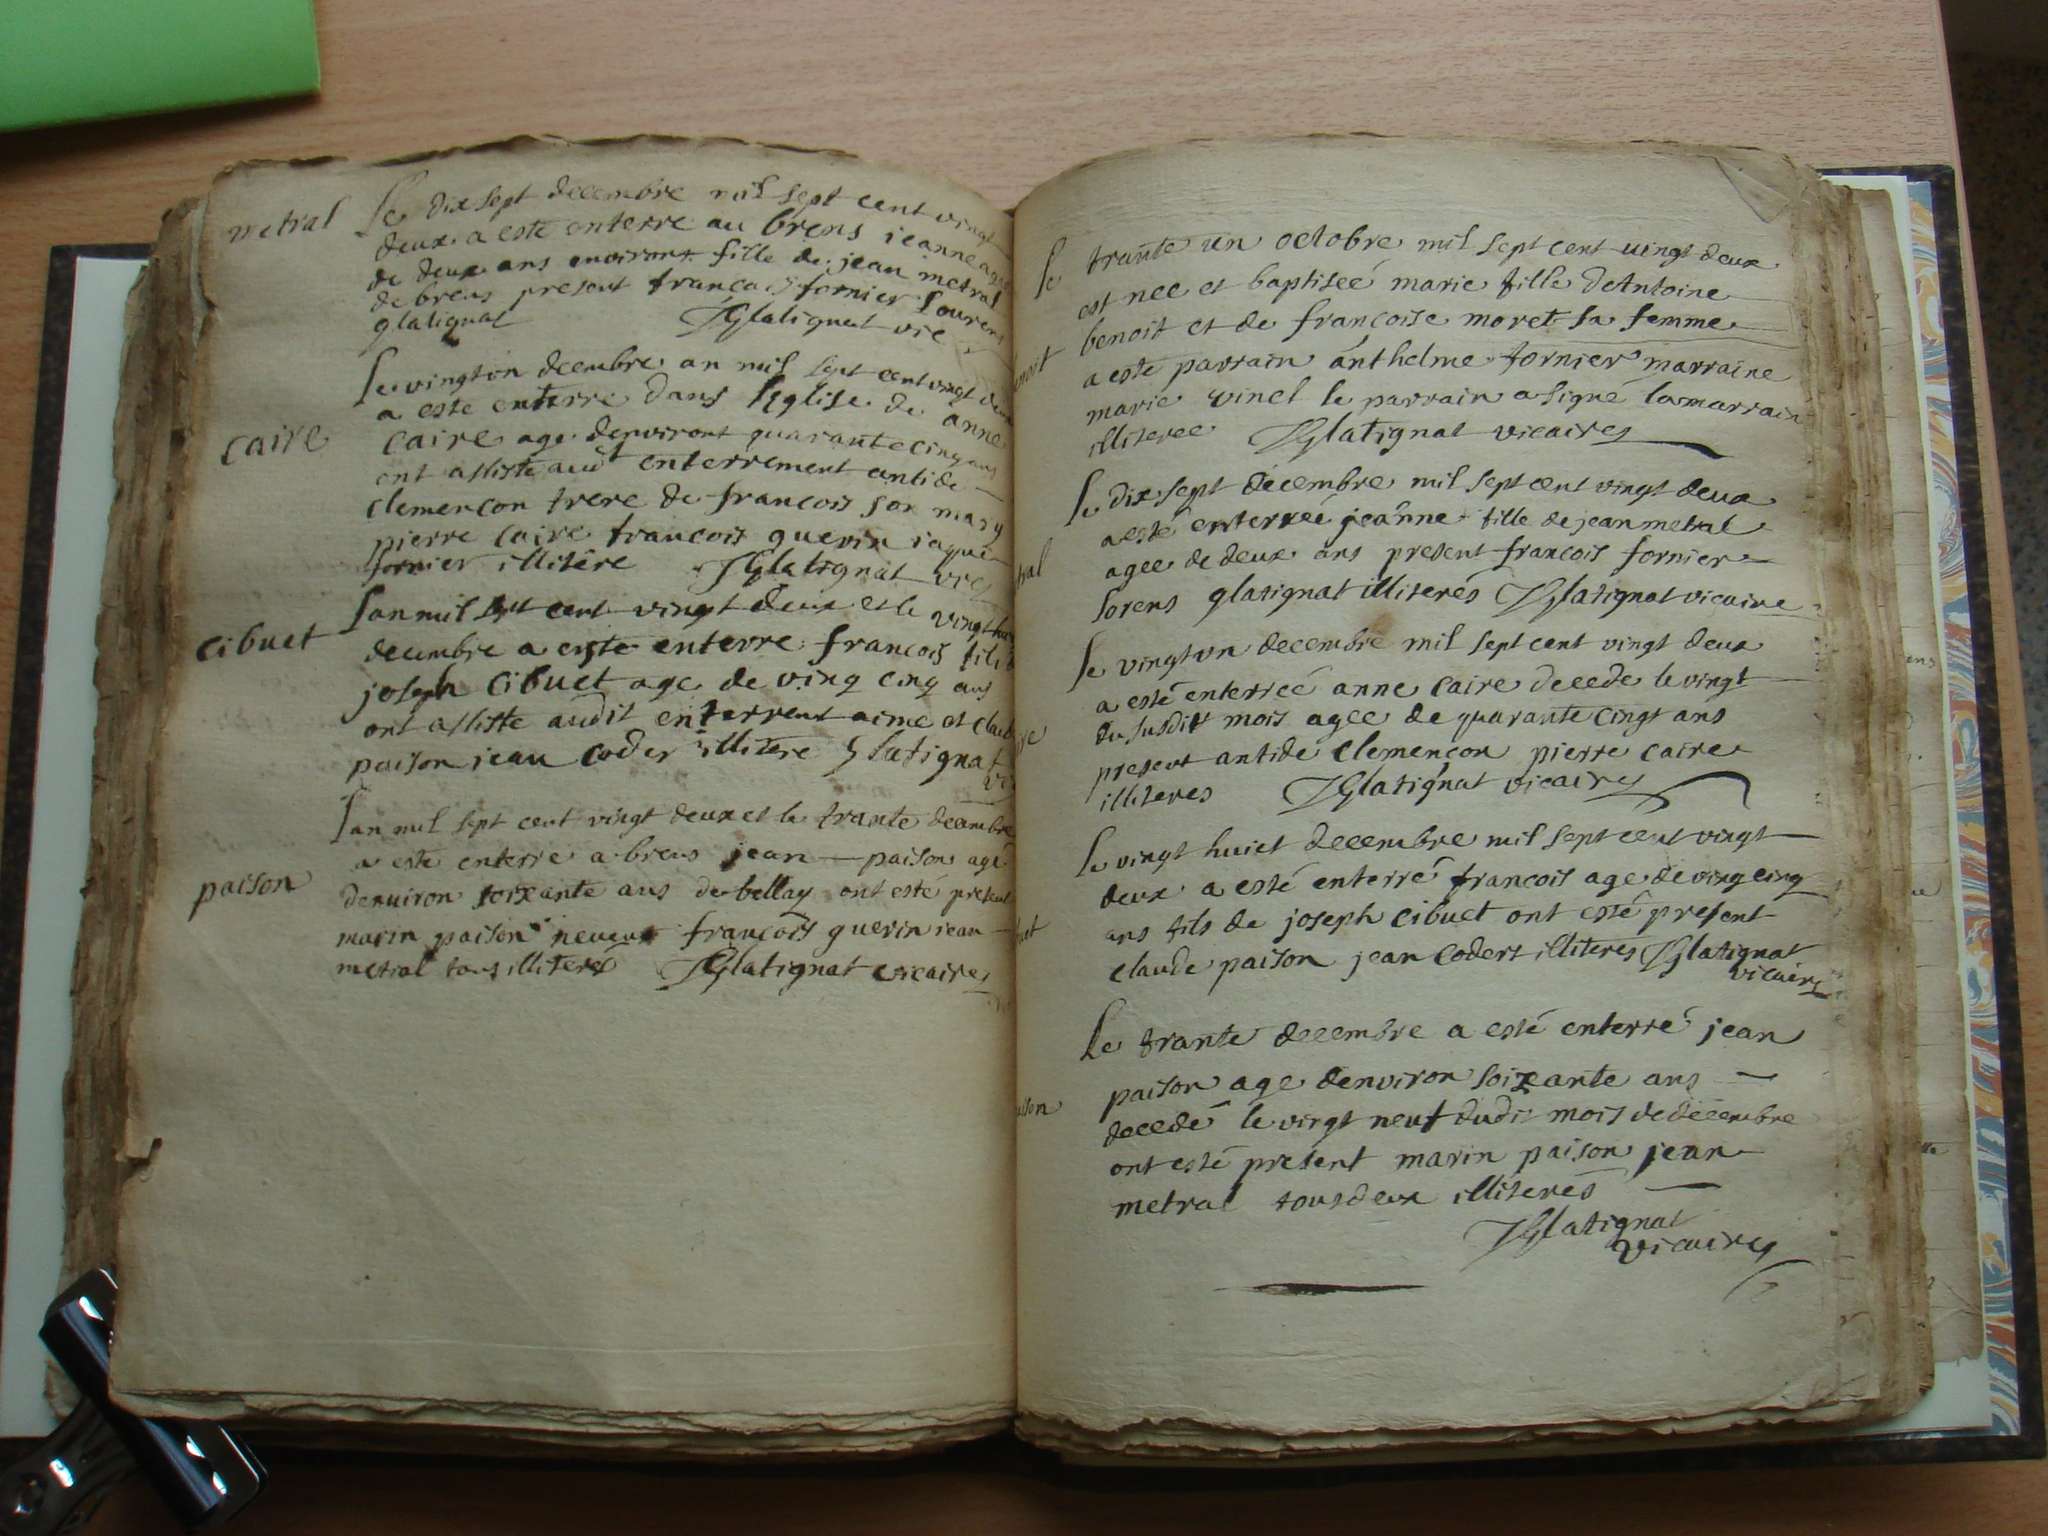 metral
Le dix sept decembre mil sept cent vingt
deux a este enterre au brens jeanne agee
de deux ans environt fille de jean metral
de brens present francois fornier Lourens
glatignat JGlatignat vic
Le vingt un decembre an mil sept cent vingt deux
a este enterre dans l'Eglise de anne
caire
caire age denviront quarante cinq ans
ont assiste audt enterrement antide
clemencon frere de francois son mary
pierre caire francois guerin iaque
fornier illitere JGlatignat vic
Lan mil sept cent vingt deux et le vingt hui
cibuet
decembre a este enterre francois fils
joseph cibuet age de ving cinq ans
ont assiste audit enterrent aime et claude
paison jean coder illitere Glatignat
vi
Lan mil sept cent vingt deux et le trante decembre
a este enterre a brens jean — paison agé
paison
denviron soixante ans de bellay ont esté present
marin paison neveux francois guerin jean —
metral tous illiteres JGlatignat vicaire
Le trante un octobre mil sept cent vingt deux
est nee et baptiseé marie fille deAntoine
benoit et de francoise moret sa femme
a este parrain anthelme fornier marraine
marie vinet le parrain a signé la marraine
illiteree JGlatignat vicaire
Le dix sept decembre mil sept cent vingt deux
a esté enterreé jeanne fille de jean metral
agee de deux ans present francois fornier
Lorens glatignat illiterés JGlatignat vicaire
Le vingt un decembre mil sept cent vingt deux
a esté enterreé anne caire decede le vingt
du susdit mois agee de quarante cingt ans
present antide clemencon pierre caire
illiteres JGlatignat vicaire
Le vingt huict decembre mil sept cent vingt
deux a esté enterré francois age de ving cinq
ans fils de joseph cibuet ont esté present
claude paison jean codert illiteres JGlatignat
vicaire
Le trante decembre a esté enterré jean
paison age denviron soixante ans —
decedé le vingt neuf dudit mois de decembre
ont esté present marin paison jean
metral tous deux illiterés —
JGlatignat
vicaire